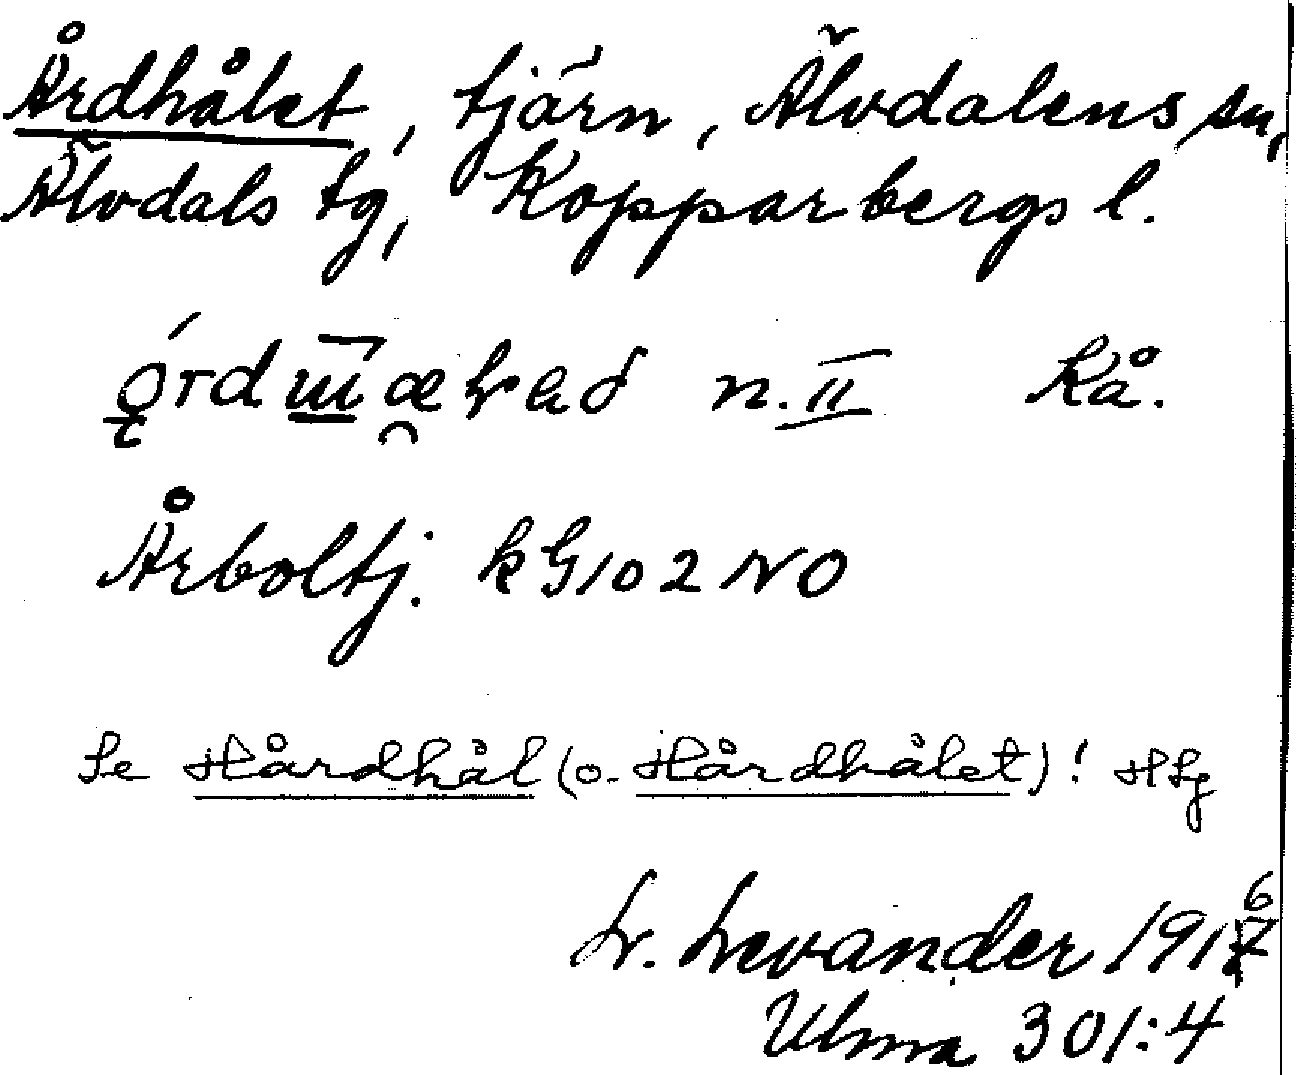 Årdhålet, tjärn, Älvdalens sn,
Älvdals tg, Kopparbergs l.
n. II Kå.
Årboltj. kG 102 NO
Se Hårdhål (o. Hårdhålet)! HLg
L. Levander 1916
Ulma 301:4